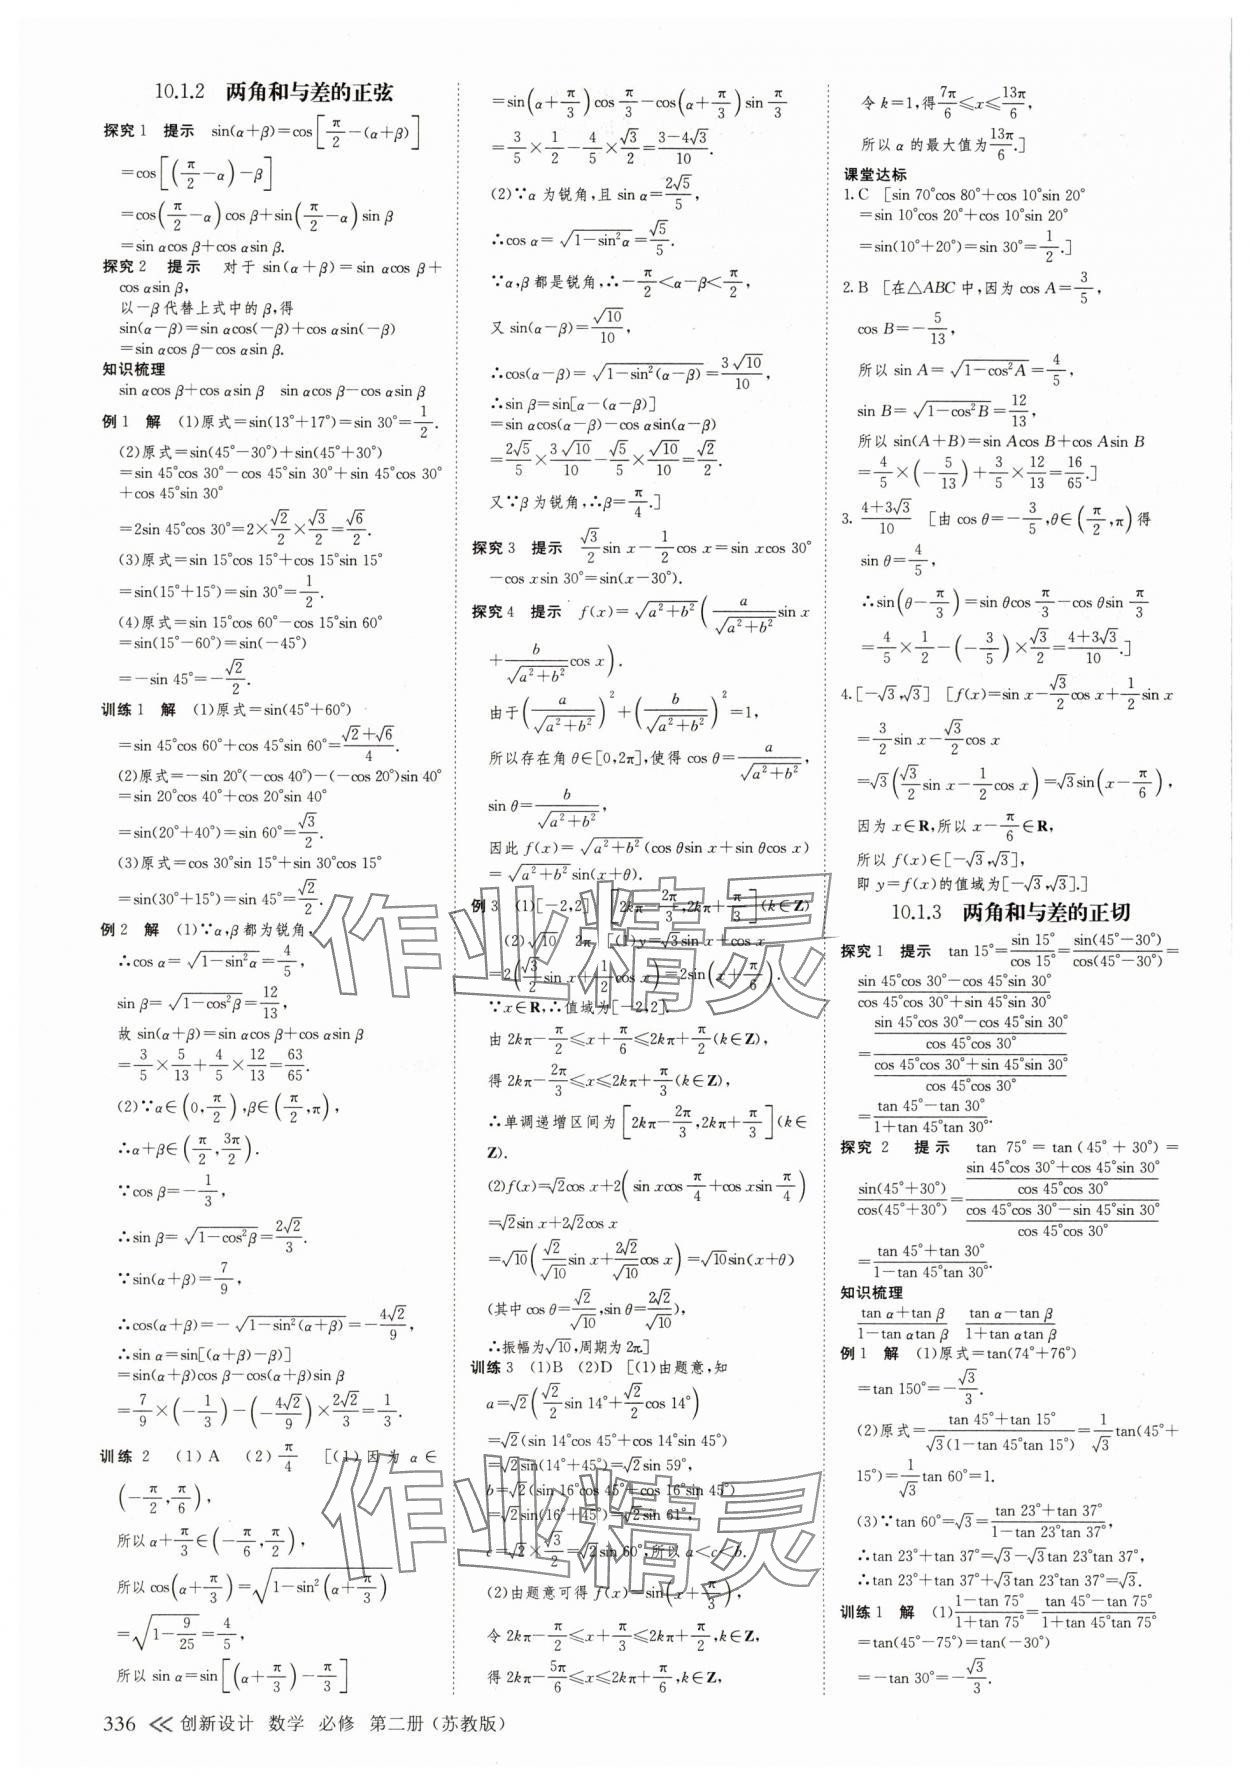 10.1.2 两角和与差的正弦
探究1 提示 sin(α+β)=cos[π/2−(α+β)]
=cos[(π/2−α)−β]
=cos(π/2−α)cos β+sin(π/2−α)sin β
=sin αcos β+cos αsin β.
探究2 提示 对于 sin(α+β)=sin αcos β+
cos αsin β,
以−β代替上式中的β,得
sin(α−β)=sin αcos(−β)+cos αsin(−β)
=sin αcos β−cos αsin β.
知识梳理
sin αcos β+cos αsin β sin αcos β−cos αsin β
例1 解 (1)原式=sin(13°+17°)=sin 30°=1/2.
(2)原式=sin(45°−30°)+sin(45°+30°)
=sin 45°cos 30°−cos 45°sin 30°+sin 45°cos 30°
+cos 45°sin 30°
=2sin 45°cos 30°=2×√2/2×√3/2=√6/2.
(3)原式=sin 15°cos 15°+cos 15°sin 15°
=sin(15°+15°)=sin 30°=1/2.
(4)原式=sin 15°cos 60°−cos 15°sin 60°
=sin(15°−60°)=sin(−45°)
=−sin 45°=−√2/2.
训练1 解 (1)原式=sin(45°+60°)
=sin 45°cos 60°+cos 45°sin 60°=(√2+√6)/4.
(2)原式=−sin 20°(−cos 40°)−(−cos 20°)sin 40°
=sin 20°cos 40°+cos 20°sin 40°
=sin(20°+40°)=sin 60°=√3/2.
(3)原式=cos 30°sin 15°+sin 30°cos 15°
=sin(30°+15°)=sin 45°=√2/2.
例2 解 (1)∵α,β都为锐角,
∴cos α=√(1−sin²α)=4/5,
sin β=√(1−cos²β)=12/13,
故 sin(α+β)=sin αcos β+cos αsin β
=3/5×5/13+4/5×12/13=63/65.
(2)∵α∈(0,π/2),β∈(π/2,π),
∴α+β∈(π/2,3π/2).
∵cos β=−1/3,
∴sin β=√(1−cos²β)=2√2/3.
∵sin(α+β)=7/9,
∴cos(α+β)=−√(1−sin²(α+β))=−4√2/9,
∴sin α=sin[(α+β)−β)]
=sin(α+β)cos β−cos(α+β)sin β
=7/9×(−1/3)−(−4√2/9)×2√2/3=1/3.
训练2 (1)A (2)π/4 [(1)因为 α∈
(−π/2,π/6),
所以α+π/3∈(−π/6,π/2),
所以cos(α+π/3)=√(1−sin²(α+π/3))
=√(1−9/25)=4/5,
所以 sin α=sin[(α+π/3)−π/3]
=sin(α+π/3)cos π/3−cos(α+π/3)sin π/3
=3/5×1/2−4/5×√3/2=(3−4√3)/10.
(2)∵α为锐角,且 sin α=2√5/5,
∴cos α=√(1−sin²α)=√5/5.
∵α,β都是锐角,∴−π/2<α−β<π/2,
又 sin(α−β)=√10/10,
∴cos(α−β)=√(1−sin²(α−β))=3√10/10,
∴sin β=sin[α−(α−β)]
=sin αcos(α−β)−cos αsin(α−β)
=2√5/5×3√10/10−√5/5×√10/10=√2/2.
又∵β为锐角,∴β=π/4.]
探究3 提示 √3/2 sin x−1/2 cos x=sin xcos 30°
−cos xsin 30°=sin(x−30°).
探究4 提示 f(x)=√(a²+b²)(a/√(a²+b²) sin x
+b/√(a²+b²) cos x).
由于(a/√(a²+b²))²+(b/√(a²+b²))²=1,
所以存在角θ∈[0,2π],使得cos θ=a/√(a²+b²),
sin θ=b/√(a²+b²),
因此 f(x)=√(a²+b²)(cos θsin x+sin θcos x)
=√(a²+b²)sin(x+θ).
例3 (1)[−2,2] [2kπ−2π/3,2kπ+π/3](k∈Z)
(2)√10 2π [(1)y=√3sin x+cos x
=2(√3/2 sin x+1/2 cos x)=2sin(x+π/6).
∵x∈R,∴值域为[−2,2].
由 2kπ−π/2≤x+π/6≤2kπ+π/2(k∈Z),
得 2kπ−2π/3≤x≤2kπ+π/3(k∈Z),
∴单调递增区间为[2kπ−2π/3,2kπ+π/3](k∈
Z).
(2)f(x)=√2cos x+2(sin xcos π/4+cos xsin π/4)
=√2sin x+2√2cos x
=√10(√2/√10 sin x+2√2/√10 cos x)=√10sin(x+θ)
(其中cos θ=√2/√10,sin θ=2√2/√10),
∴振幅为√10,周期为2π.]
训练3 (1)B (2)D [(1)由题意,知
a=√2(√2/2 sin 14°+√2/2 cos 14°)
=√2(sin 14°cos 45°+cos 14°sin 45°)
=√2sin(14°+45°)=√2sin 59°,
b=√2(sin 16°cos 45°+cos 16°sin 45°)
=√2sin(16°+45°)=√2sin 61°,
c=√2×√3/2=√2sin 60°,所以a<c<b.
(2)由题意可得 f(x)=sin(x+π/3),
令 2kπ−π/2≤x+π/3≤2kπ+π/2,k∈Z,
得 2kπ−5π/6≤x≤2kπ+π/6,k∈Z,
令k=1,得7π/6≤x≤13π/6,
所以 α 的最大值为13π/6.]
课堂达标
1.C [sin 70°cos 80°+cos 10°sin 20°
=sin 10°cos 20°+cos 10°sin 20°
=sin(10°+20°)=sin 30°=1/2.]
2.B [在△ABC中,因为 cos A=3/5,
cos B=−5/13,
所以 sin A=√(1−cos²A)=4/5,
sin B=√(1−cos²B)=12/13,
所以 sin(A+B)=sin Acos B+cos Asin B
=4/5×(−5/13)+3/5×12/13=16/65.]
3.(4+3√3)/10 [由 cos θ=−3/5,θ∈(π/2,π)得
sin θ=4/5,
∴sin(θ−π/3)=sin θcos π/3−cos θsin π/3
=4/5×1/2−(−3/5)×√3/2=(4+3√3)/10.]
4.[−√3,√3] [f(x)=sin x−√3/2 cos x+1/2 sin x
=3/2 sin x−√3/2 cos x
=√3(√3/2 sin x−1/2 cos x)=√3sin(x−π/6),
因为 x∈R,所以 x−π/6∈R,
所以 f(x)∈[−√3,√3],
即 y=f(x)的值域为[−√3,√3].]
10.1.3 两角和与差的正切
探究1 提示 tan 15°=sin 15°/cos 15°=sin(45°−30°)/cos(45°−30°)=
(sin 45°cos 30°−cos 45°sin 30°)/(cos 45°cos 30°+sin 45°sin 30°)
=((sin 45°cos 30°−cos 45°sin 30°)/(cos 45°cos 30°))/((cos 45°cos 30°+sin 45°sin 30°)/(cos 45°cos 30°))
=(tan 45°−tan 30°)/(1+tan 45°tan 30°).
探究2 提示 tan 75°=tan(45°+30°)=
sin(45°+30°)/cos(45°+30°)=((sin 45°cos 30°+cos 45°sin 30°)/(cos 45°cos 30°))/((cos 45°cos 30°−sin 45°sin 30°)/(cos 45°cos 30°))
=(tan 45°+tan 30°)/(1−tan 45°tan 30°).
知识梳理
(tan α+tan β)/(1−tan αtan β) (tan α−tan β)/(1+tan αtan β)
例1 解 (1)原式=tan(74°+76°)
=tan 150°=−√3/3.
(2)原式=(tan 45°+tan 15°)/(√3(1−tan 45°tan 15°))=1/√3 tan(45°+
15°)=1/√3 tan 60°=1.
(3)∵tan 60°=√3=(tan 23°+tan 37°)/(1−tan 23°tan 37°),
∴tan 23°+tan 37°=√3−√3tan 23°tan 37°,
∴tan 23°+tan 37°+√3tan 23°tan 37°=√3.
训练1 解 (1)(1−tan 75°)/(1+tan 75°)=(tan 45°−tan 75°)/(1+tan 45°tan 75°)
=tan(45°−75°)=tan(−30°)
=−tan 30°=−√3/3.
336 ≪ 创新设计 数学 必修 第二册(苏教版)
作业精灵
作业精灵